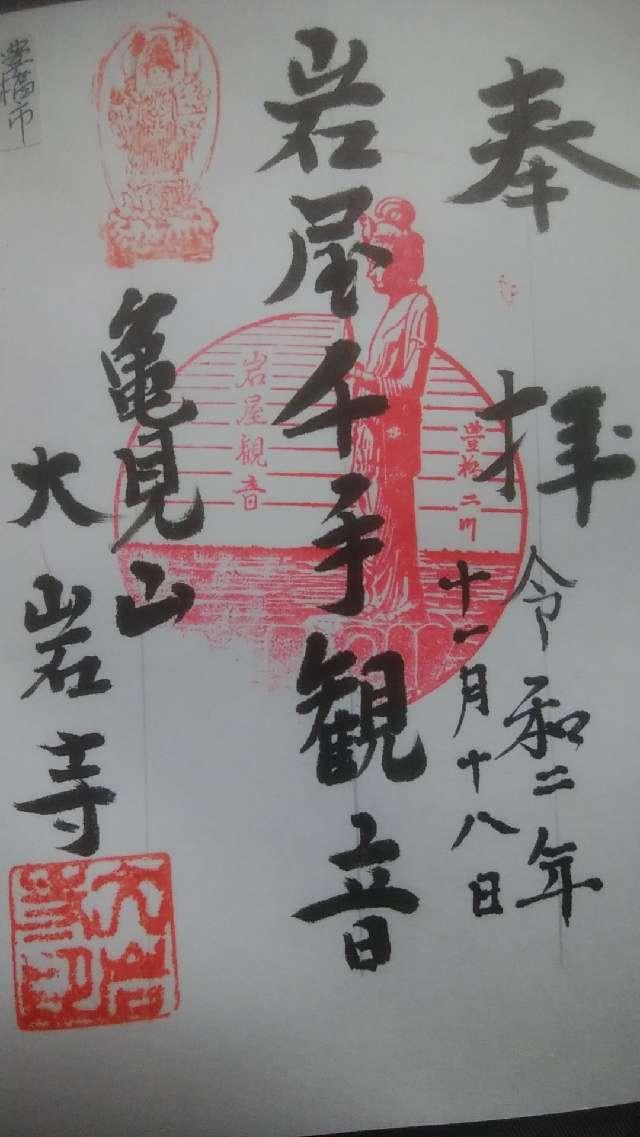 奉拝
令和二年
十一月十八日
岩屋千手観音
豊橋二川
岩屋観音
亀見山
大岩寺
豊橋市
大岩寺印